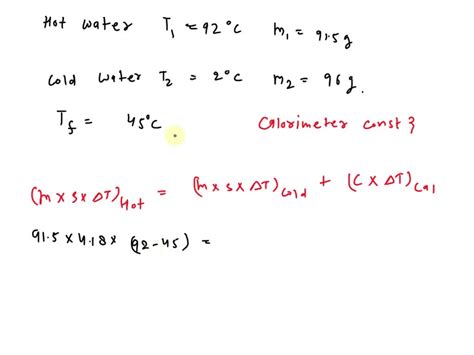 Hot water T₁ = 92°C m₁ = 91.5g
Cold water T₂ = 2°C m₂ = 96g.
T_f = 45°C Calorimeter const }
(m×s×ΔT)Hot = (m×s×ΔT)Cold + (C×ΔT)Cal
91.5×4.18× (92-45) =